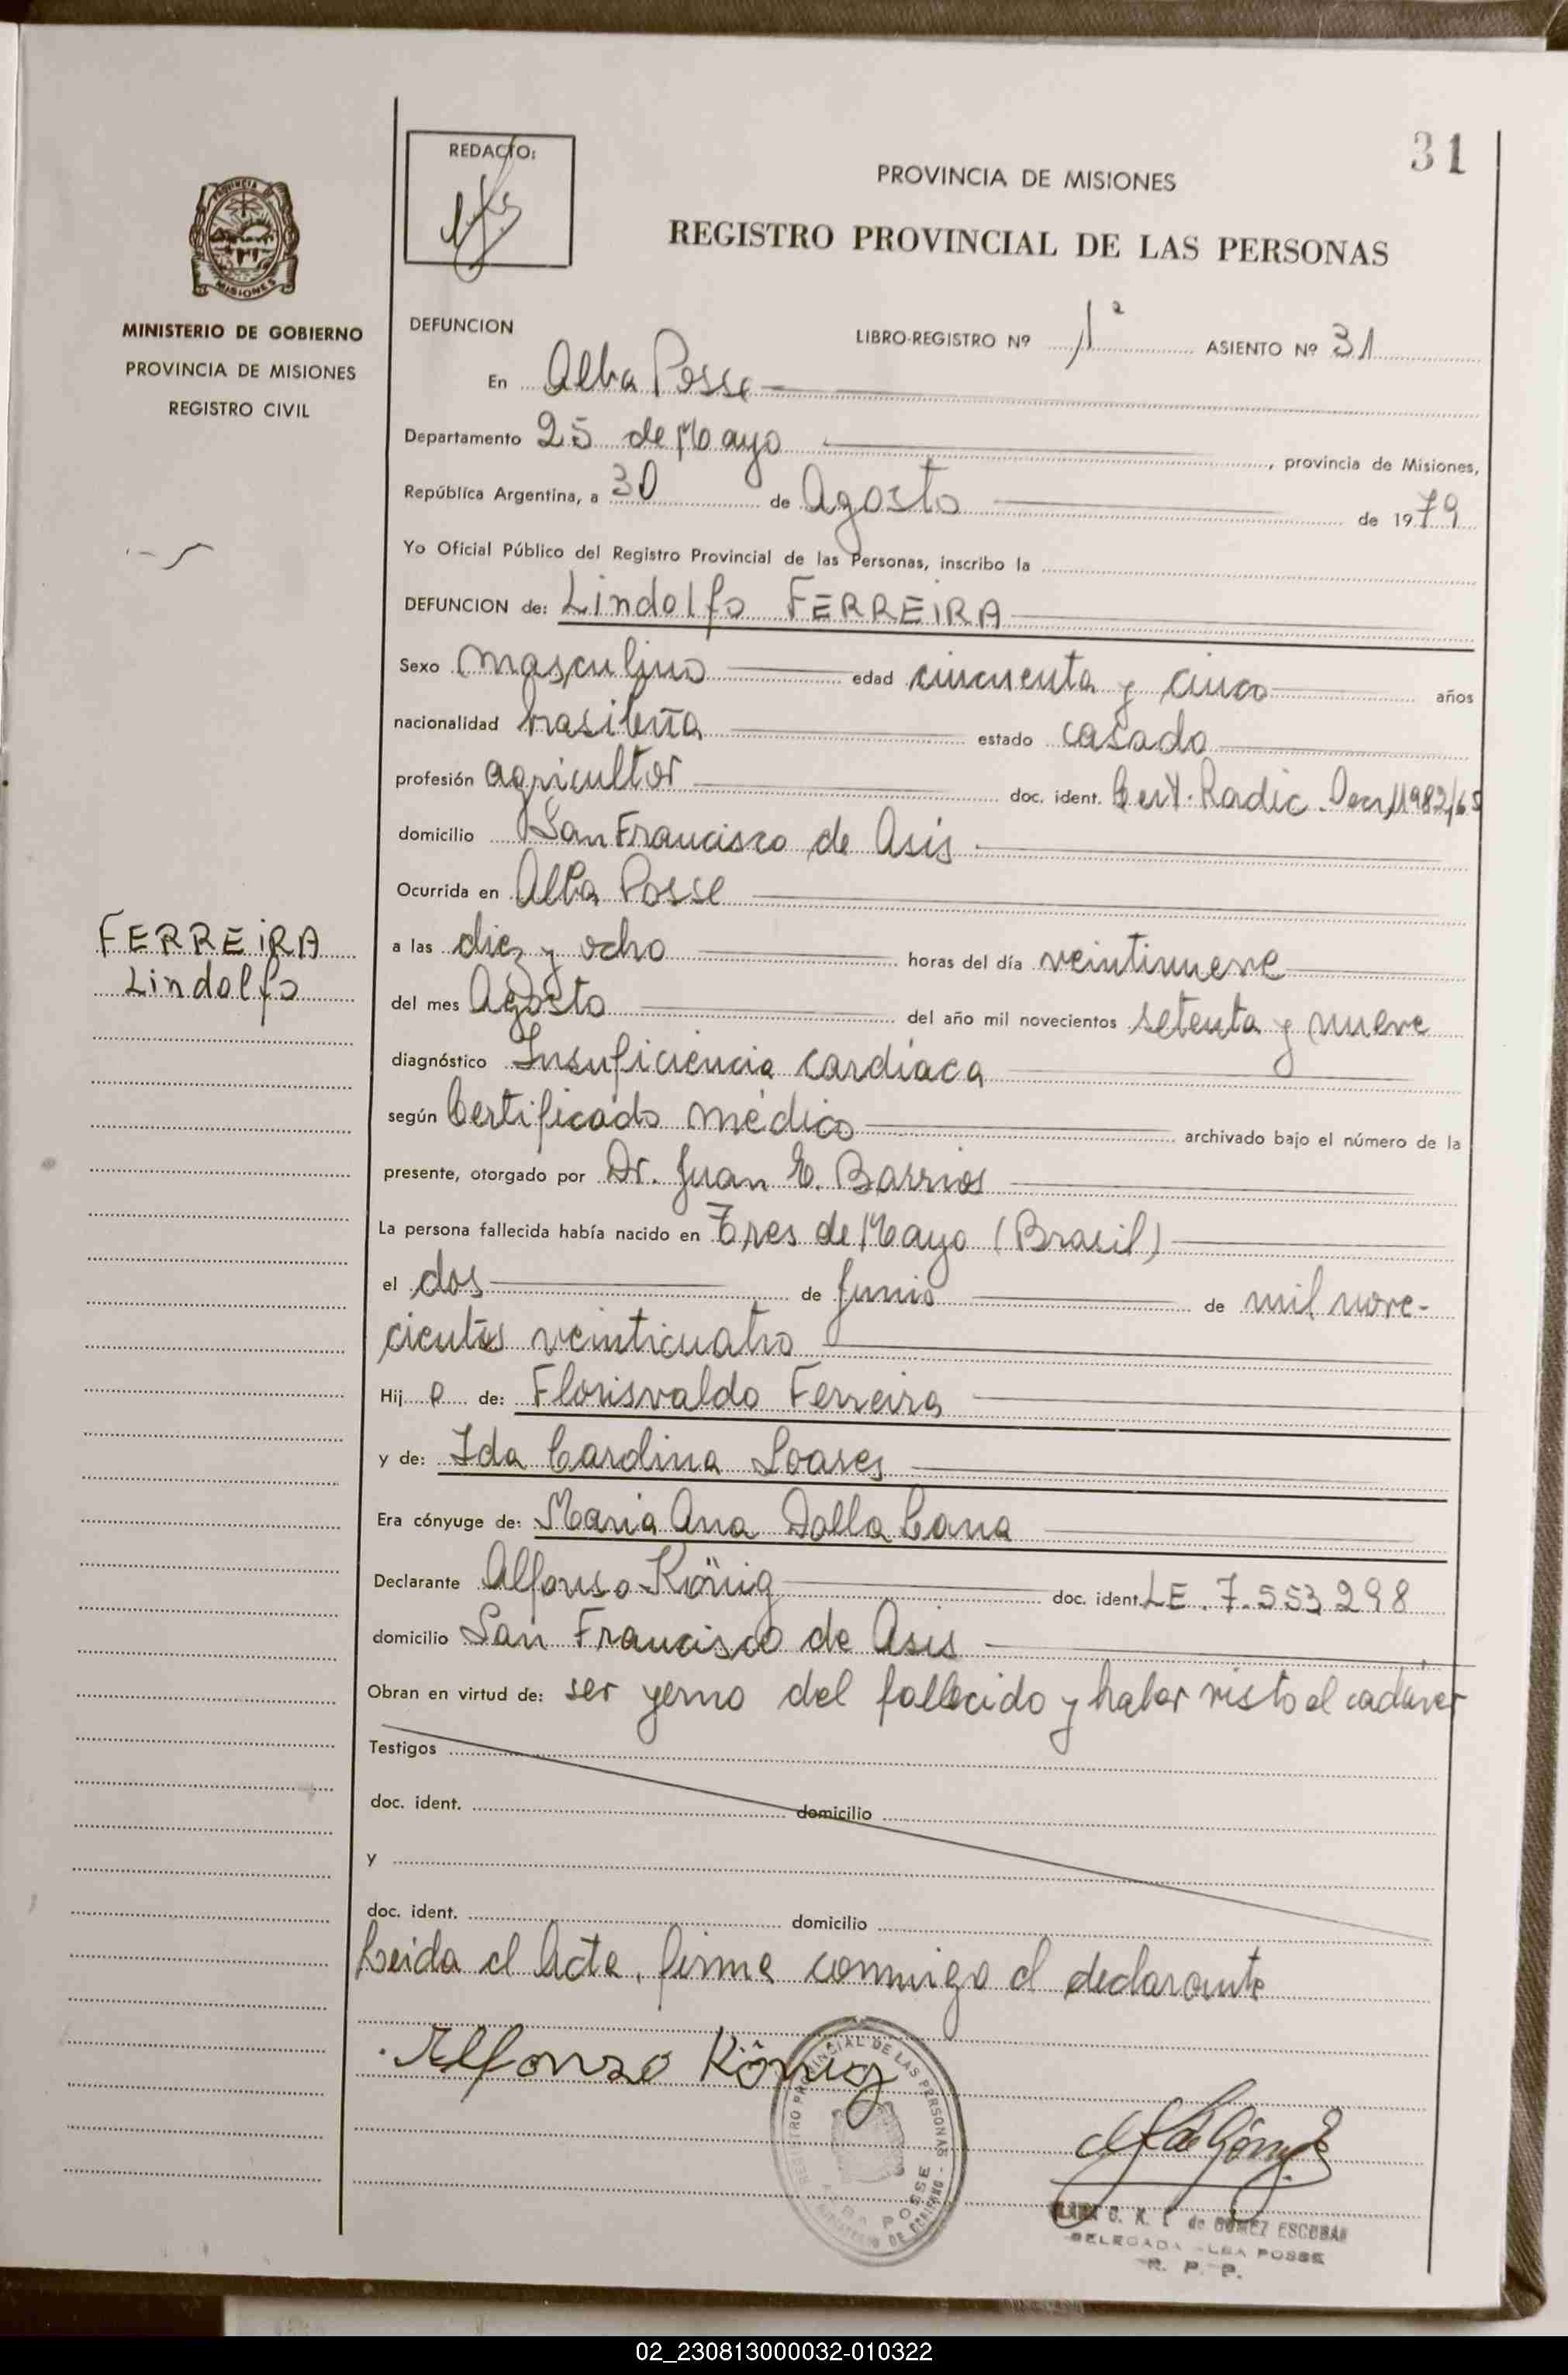 31
REDACTO:
PROVINCIA DE MISIONES
REGISTRO PROVINCIAL DE LAS PERSONAS
PROVINCIA DE
MISIONES
MINISTERIO DE GOBIERNO
PROVINCIA DE MISIONES
REGISTRO CIVIL
DEFUNCION
LIBRO-REGISTRO Nº 1º ASIENTO Nº 31
En Alba Posse
Departamento 25 de Mayo, provincia de Misiones,
República Argentina, a 30 de Agosto de 1979
Yo Oficial Público del Registro Provincial de las Personas, inscribo la
DEFUNCION de: Lindolfo FERREIRA
Sexo masculino edad cincuenta y cinco años
nacionalidad brasileña estado casado
profesión agricultor doc. ident. Cert. Radic. Decr. 11982/65
domicilio San Francisco de Asis
Ocurrida en Alba Posse
FERREIRA
Lindolfo
a las diez y ocho horas del día veintinueve
del mes Agosto del año mil novecientos setenta y nueve
diagnóstico Insuficiencia cardíaca
según Certificado médico archivado bajo el número de la
presente, otorgado por Dr. Juan E. Barrios
La persona fallecida había nacido en Tres de Mayo (Brasil)
el dos de Junio de mil nove-
cientos veinticuatro
Hij o de: Florisvaldo Ferreira
y de: Ida Carolina Soares
Era cónyuge de: Maria Ana Dalla Cana
Declarante Alfonso König doc. ident. LE. 7.553.298
domicilio San Francisco de Asis
Obran en virtud de: ser yerno del fallecido y haber visto el cadáver
Testigos
doc. ident. domicilio
y
doc. ident. domicilio
Leida el Acta, firma conmigo el declarante
Alfonso König
REGISTRO PROVINCIAL DE LAS PERSONAS -
ALBA POSSE
MINISTERIO DE GOBIERNO -
de GOMEZ ESCOBAR
DELEGADA ALBA POSSE
R. P. P.
02_230813000032-010322